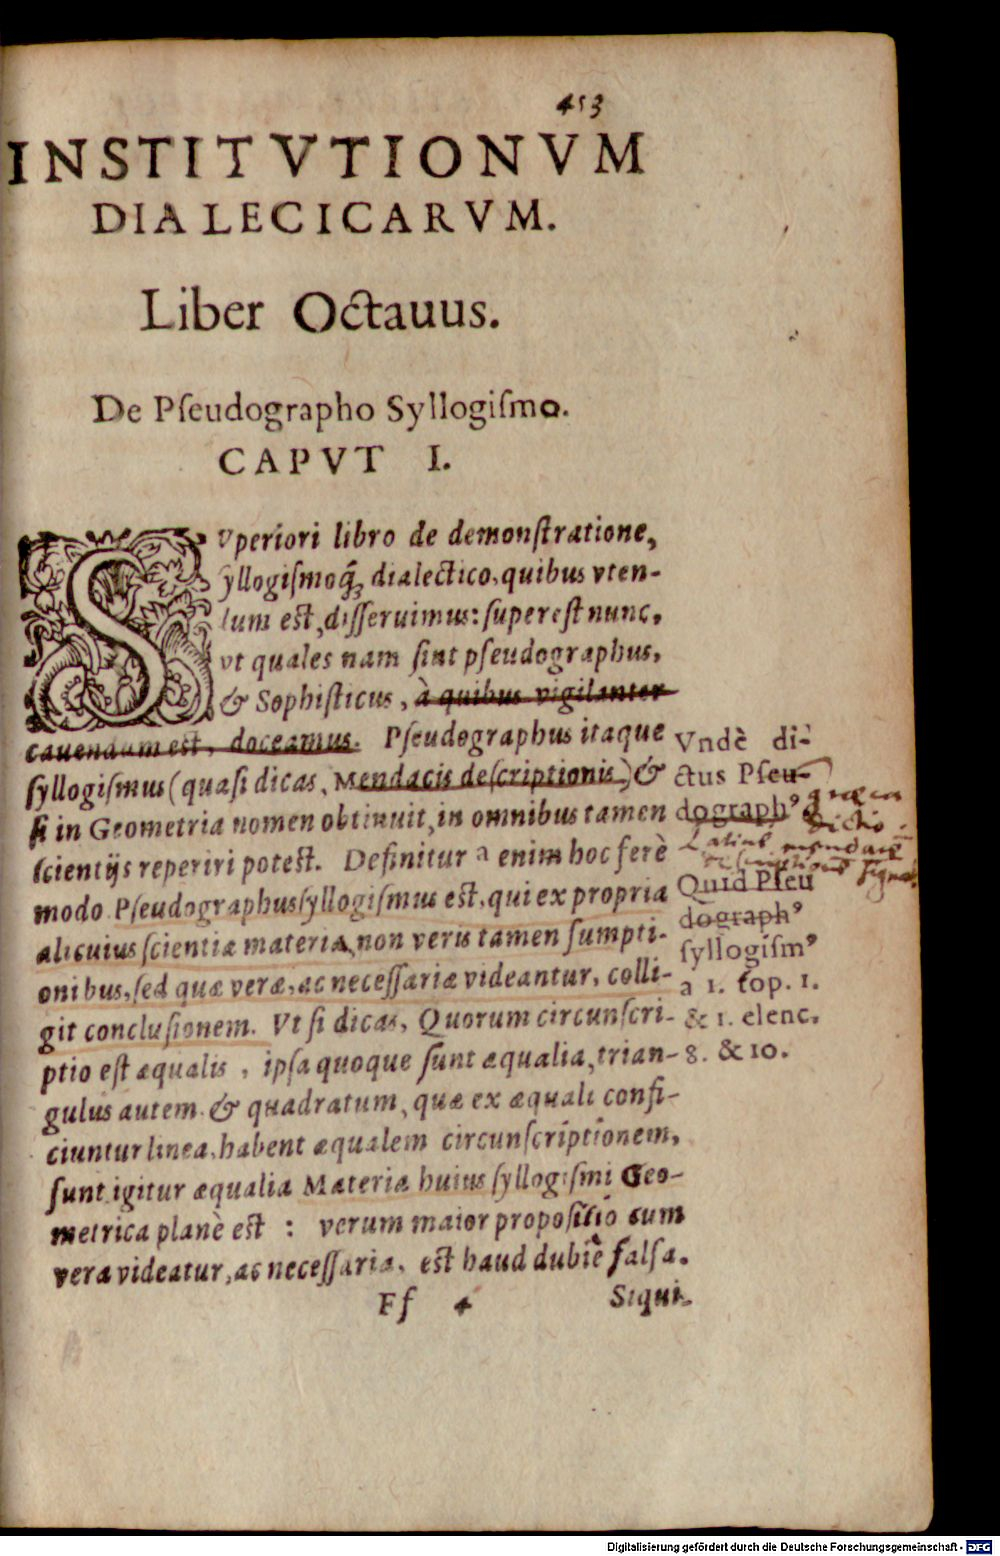 453
INSTITVTIONVM
DIALECICARVM.
Liber Octauus.
De Pſeudographo Syllogiſmo.
CAPVT I.
SVperiori libro de demonſtratione,
ſyllogiſmoq́; dialectico, quibus vten-
dum est, diſſeruimus: ſupereſt nunc,
vt quales nam ſint pſeudographus,
& Sophiſticus, à quibus vigilanter
cauendum est, doceamus. Pſeudographus itaque
ſyllogiſmus (quaſi dicas, Mendacis deſcriptionis,) &
ſi in Geometria nomen obtinuit, in omnibus tamen
ſcientijs reperiri potest. Definitur a enim hoc ferè
modo Pſeudographus ſyllogiſmus est, qui ex propria
alicuius ſcientiæ materia, non veris tamen ſumpti-
onibus, ſed quæ veræ, ac neceſſariæ videantur, colli-
git concluſionem. Vt ſi dicas, Quorum circunſcri-
ptio eſt æqualis, ipſa quoque ſunt æqualia, trian-
gulus autem & quadratum, quæ ex æquali confi-
ciuntur linea, habent æqualem circunſcriptionem,
ſunt igitur æqualia Materia huius ſyllogiſmi Geo-
metrica planè est : verum maior propoſitio cum
vera videatur, ac neceſſaria, est haud dubiè falſa.
Ff 4 Siqui-
Vndè di-
ctus Pſeu-
dographꝰ
Quid Pſeu
dographꝰ
ſyllogiſmꝰ
a 1. top. 1.
& 1. elenc.
8. & 10.
Digitalisierung gefördert durch die Deutsche Forschungsgemeinschaft - DFG